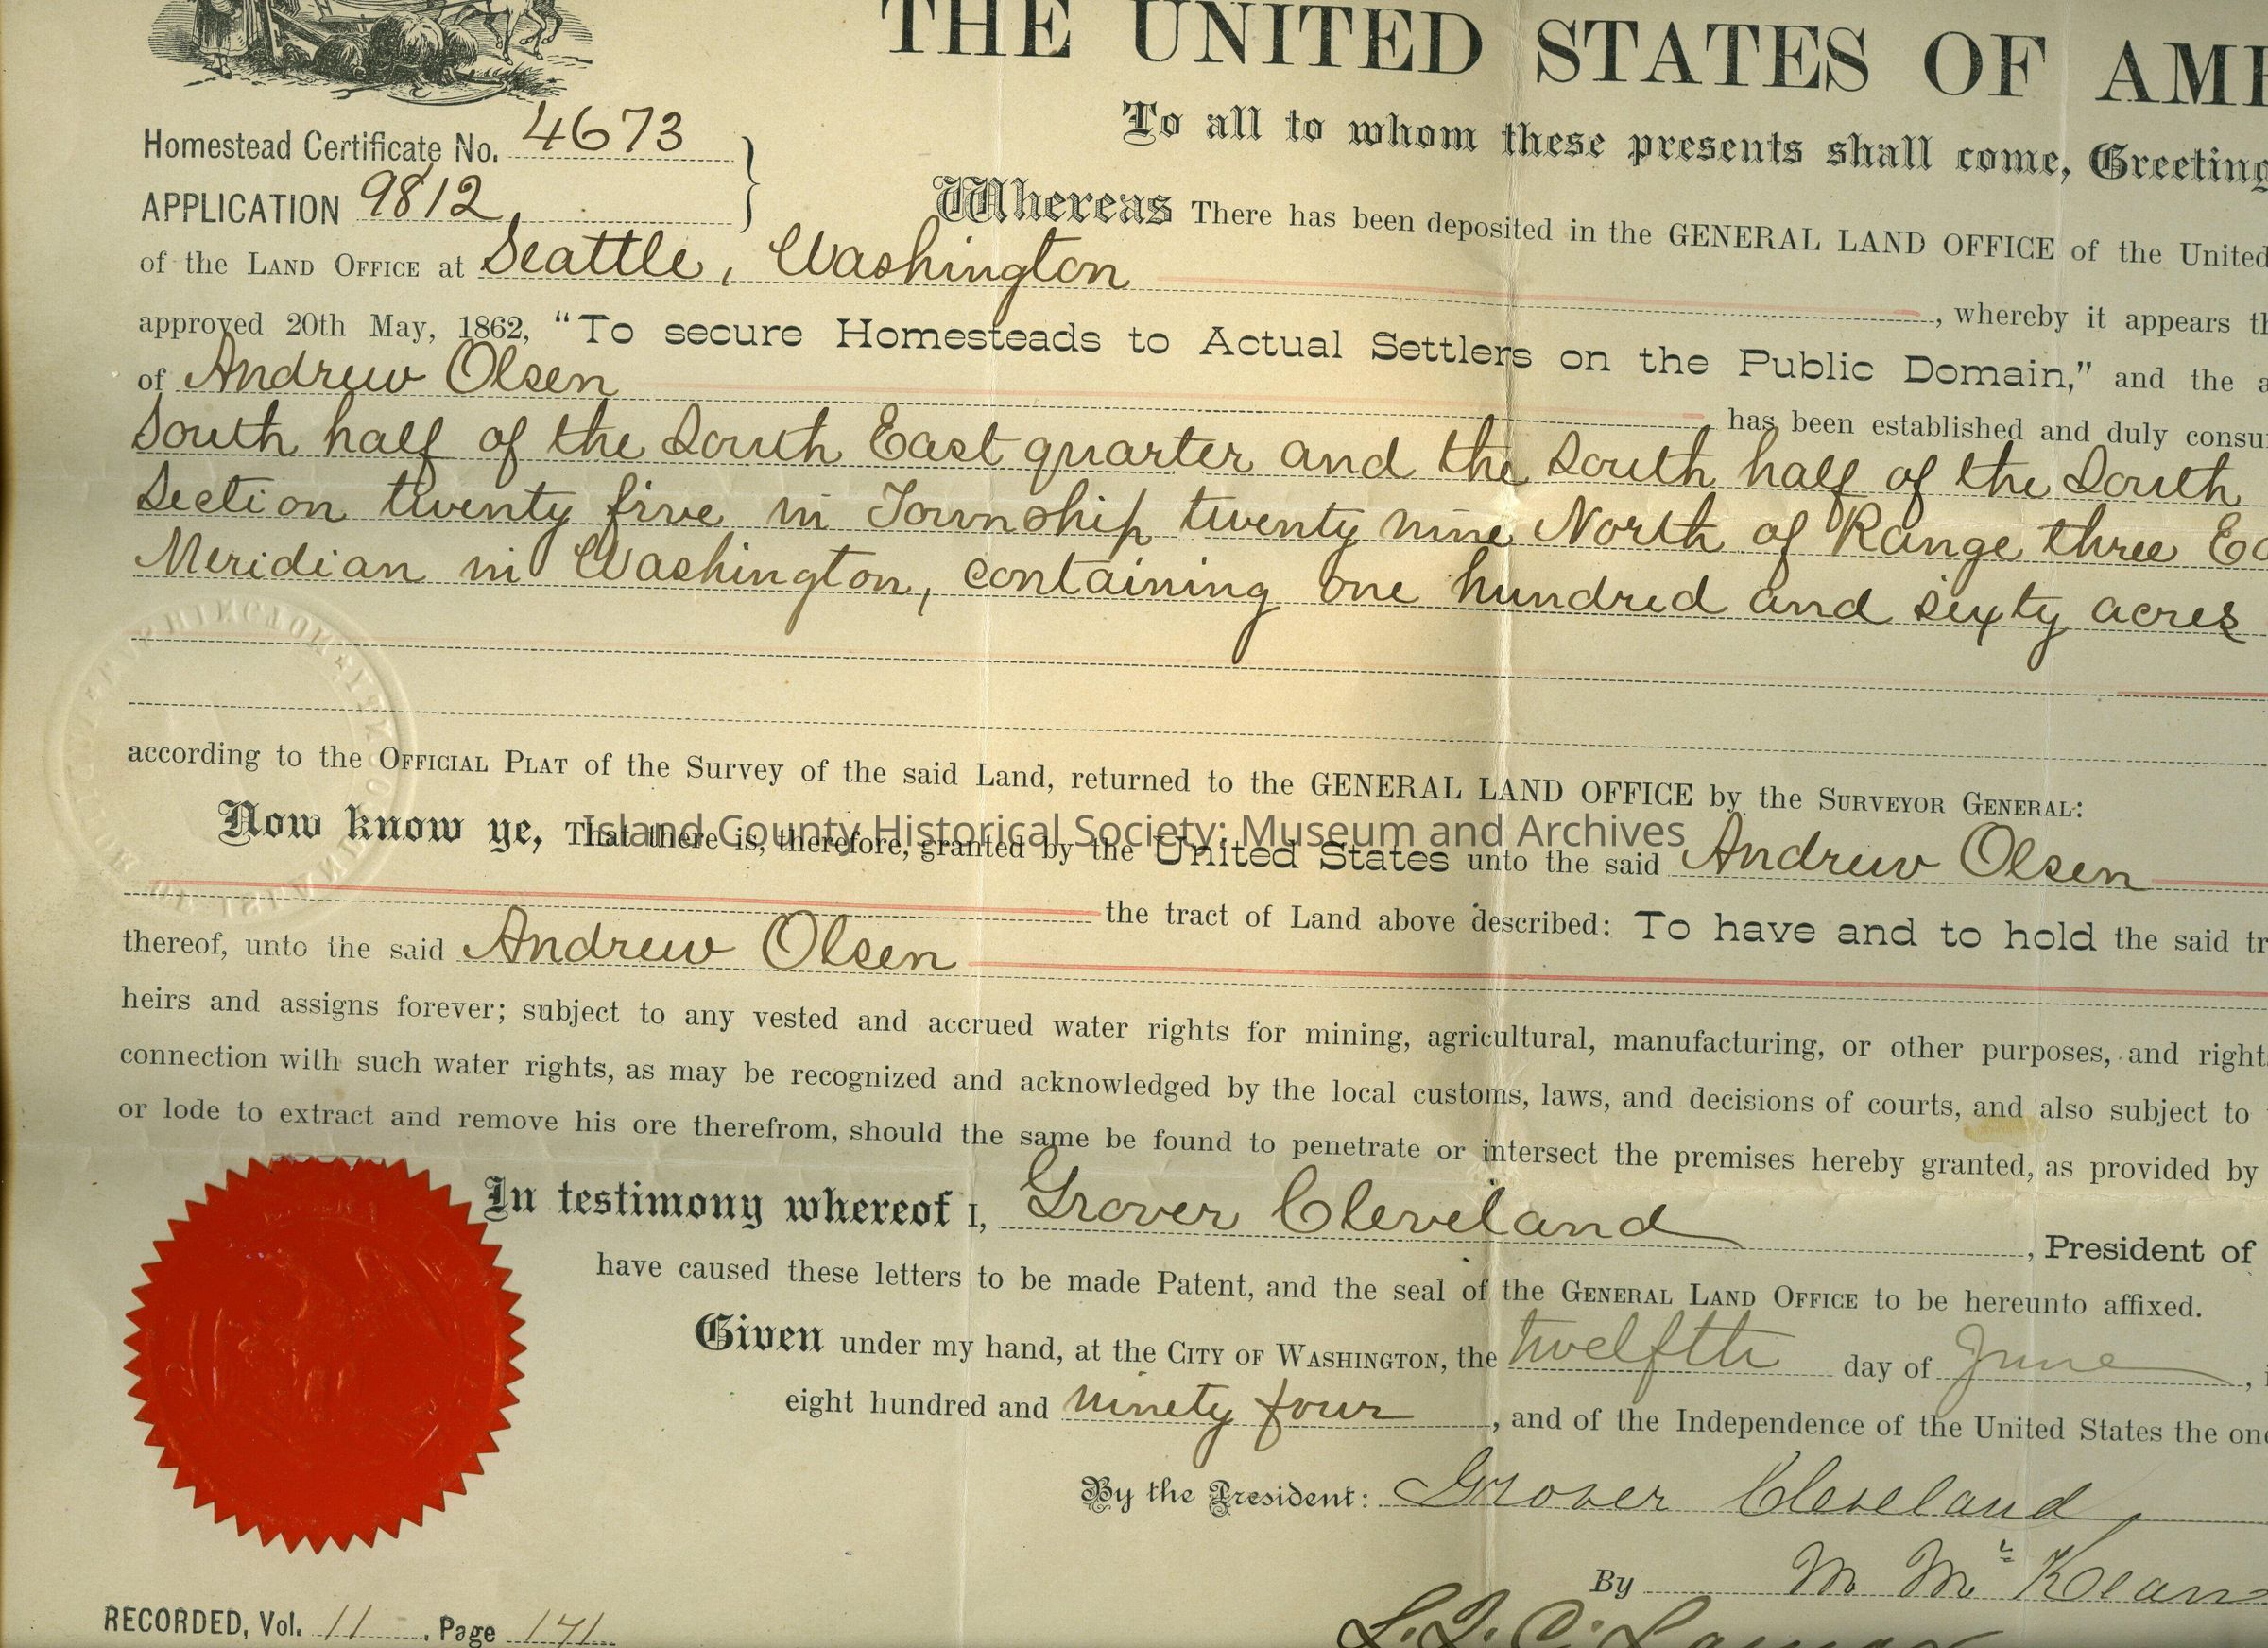 THE UNITED STATES OF AME
To all to whom these presents shall come, Greeting
Homestead Certificate No. 4673
APPLICATION 9812
Whereas There has been deposited in the GENERAL LAND OFFICE of the United
of the LAND OFFICE at Seattle, Washington , whereby it appears th
approved 20th May, 1862, “To secure Homesteads to Actual Settlers on the Public Domain,” and the a
of Andrew Olsen has been established and duly consu
South half of the South East quarter and the South half of the South
Section twenty five in Township twenty nine North of Range three Ea
Meridian in Washington, containing one hundred and sixty acres
according to the OFFICIAL PLAT of the Survey of the said Land, returned to the GENERAL LAND OFFICE by the SURVEYOR GENERAL:
Now know ye, That there is, therefore, granted by the United States unto the said Andrew Olsen
Island County Historical Society: Museum and Archives
the tract of Land above described: To have and to hold the said tr
thereof, unto the said Andrew Olsen
heirs and assigns forever; subject to any vested and accrued water rights for mining, agricultural, manufacturing, or other purposes, and rights
connection with such water rights, as may be recognized and acknowledged by the local customs, laws, and decisions of courts, and also subject to
or lode to extract and remove his ore therefrom, should the same be found to penetrate or intersect the premises hereby granted, as provided by
In testimony whereof I, Grover Cleveland , President of
have caused these letters to be made Patent, and the seal of the GENERAL LAND OFFICE to be hereunto affixed.
Given under my hand, at the CITY OF WASHINGTON, the twelfth day of June ,
eight hundred and ninety four , and of the Independence of the United States the one
By the President: Grover Cleveland
By M. McKean
L. Q. C. Lamar
RECORDED, Vol. 11 , Page 171